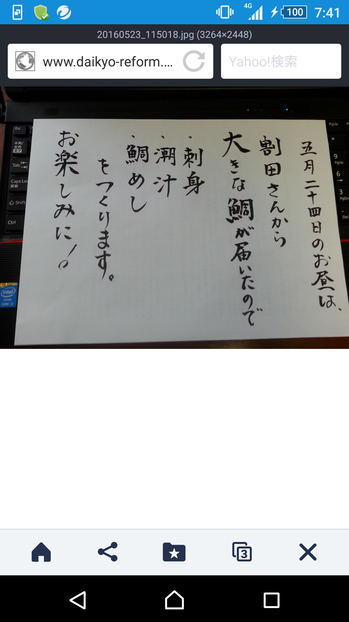 4G
100
7:41
20160523_115018.jpg (3264×2448)
www.daikyo-reform....
Yahoo!検索
五月二十四日のお昼は、
割田さんから
大きな鯛が届いたので
・刺身
・潮汁
・鯛めし
をつくります。
お楽しみに!。
3